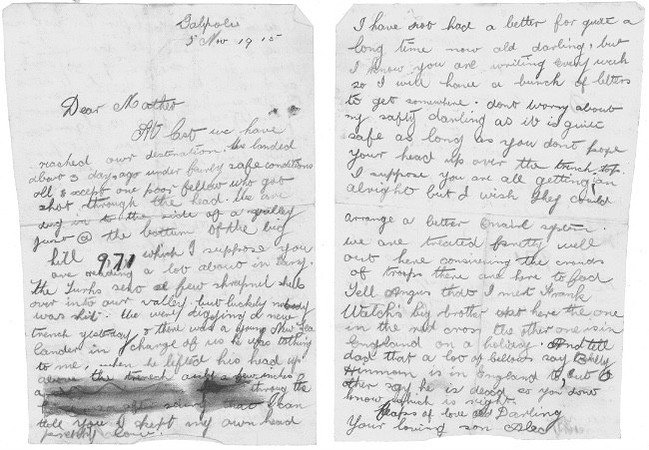 Galpoli
5 Nov 1915
Dear Mother
At last we have
reached our destination. We landed
about 3 days ago under fairly safe conditions
all except one poor fellow who got
shot through the head. We are
dug in to the side of a gulley
just @ the bottom of the big
hill 971 which I suppose you
are reading a lot about in
The Turks sent a few shrapnel shells
over into our valley but luckily nobody
was hit. We were digging a new
trench yesterday & there was a young New Zea
lander in charge of us he was talking
to me, when he lifted his head up
above the trench
through the
after seeing that I can
tell you I kept my own head
pretty low.
I have not had a better for quite a
long time now old darling, but
I know you are writing every week
so I will have a bunch of letters
to get somewhere. dont worry about
my safty darling as it is quite
safe as long as you dont pope
your head up over the trench top.
I suppose you are all getting on
alright but I wish they could
arrange a better system.
we are treated pretty well
out here considering the crowds
of troops there are here to feed
Tell Angus that I met Frank
Welch's big brother out here the one
in the red cross the other one is in
England on a holiday. And tell
dad that a lot of fellows say Billy
Hinman is in England &, but
other say he is dead so you dont
know which is right.
Heaps of love Darling
Your loving son Alec